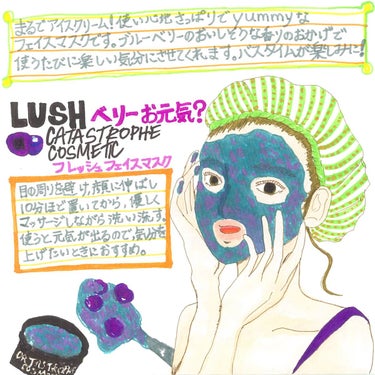 まるでアイスクリーム！使い心地さっぱりでyummyな
フェイスマスクです。ブルーベリーのおいしそうな香りのおかげで
使うたびに楽しい気分にさせてくれます。バスタイムが楽しみに！
LUSH ベリーお元気？
CATASTROPHE
COSMETIC
フレッシュフェイスマスク
目の周りを避け、顔に伸ばし
10分ほど置いてから、優しく
マッサージしながら洗い流す。
使うと元気が出るので、気分を
上げたいときにおすすめ。